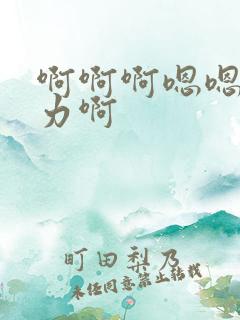 啊啊啊嗯嗯
力啊
町田梨乃
未经同意禁止转载